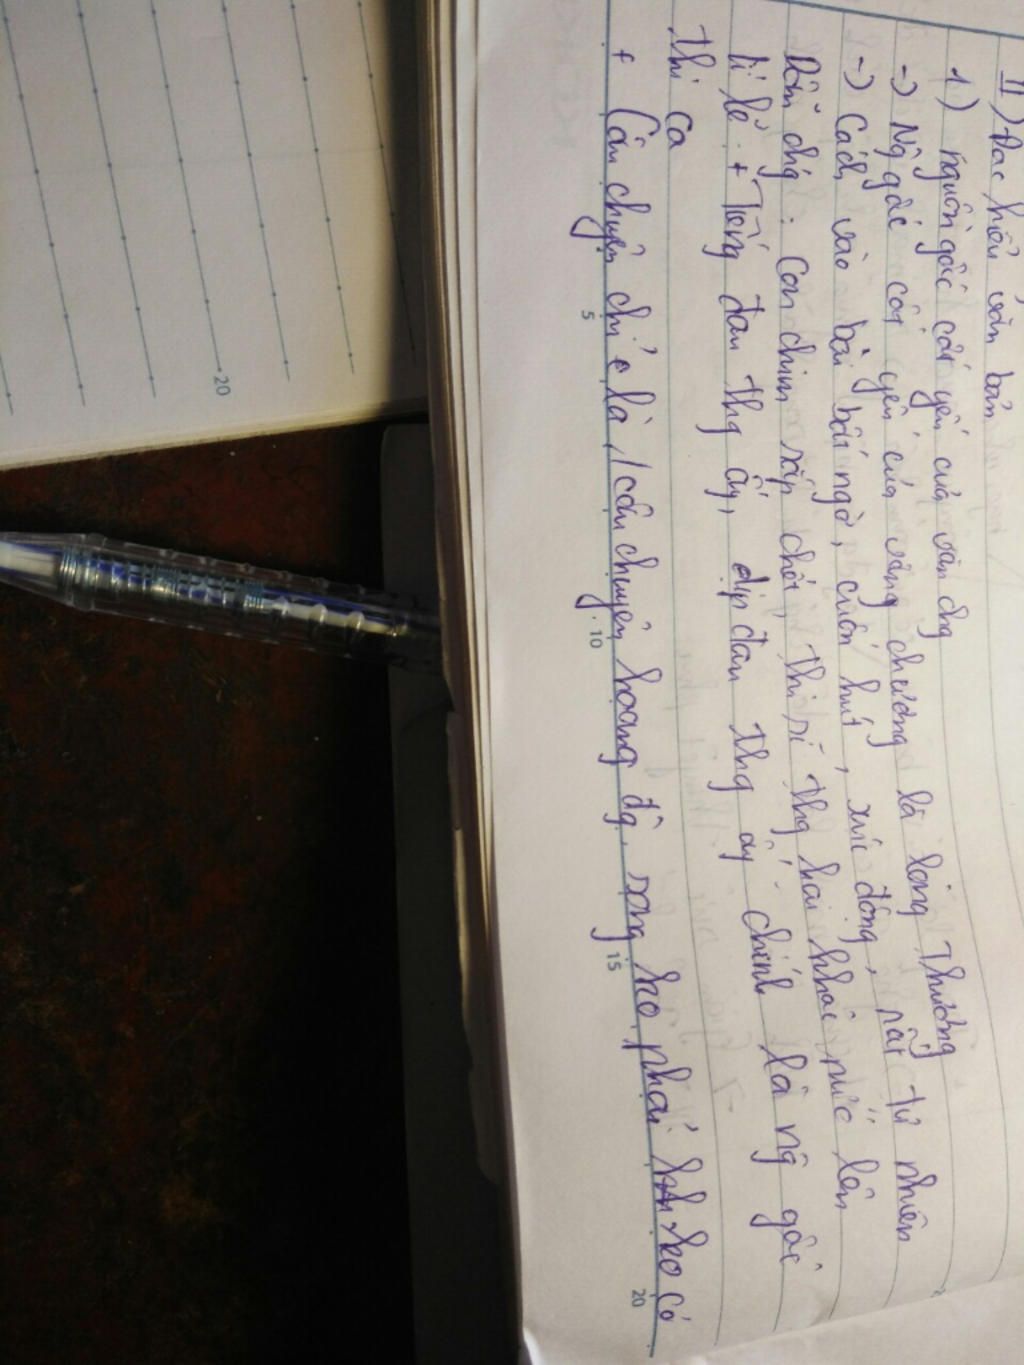 II) Đọc hiểu văn bản
1) nguồn gốc cốt yếu của văn chg
-) Ng gốc cốt yếu của văng chương là lòng thương
-) Cách vào bài bất ngờ, cuốn hút, xúc động, rất tự nhiên
Dẫn chứg : Con chim sắp chết, thi sĩ thg hại khóc nức lên
Lí lẽ : + Tiếng đau thg ấy, dịp đau thg ấy chính là ng gốc
thi ca
+ Câu chuyện chỉ là 1 câu chuyện hoang đg, song ko phải ko có
5
10
15
20
20